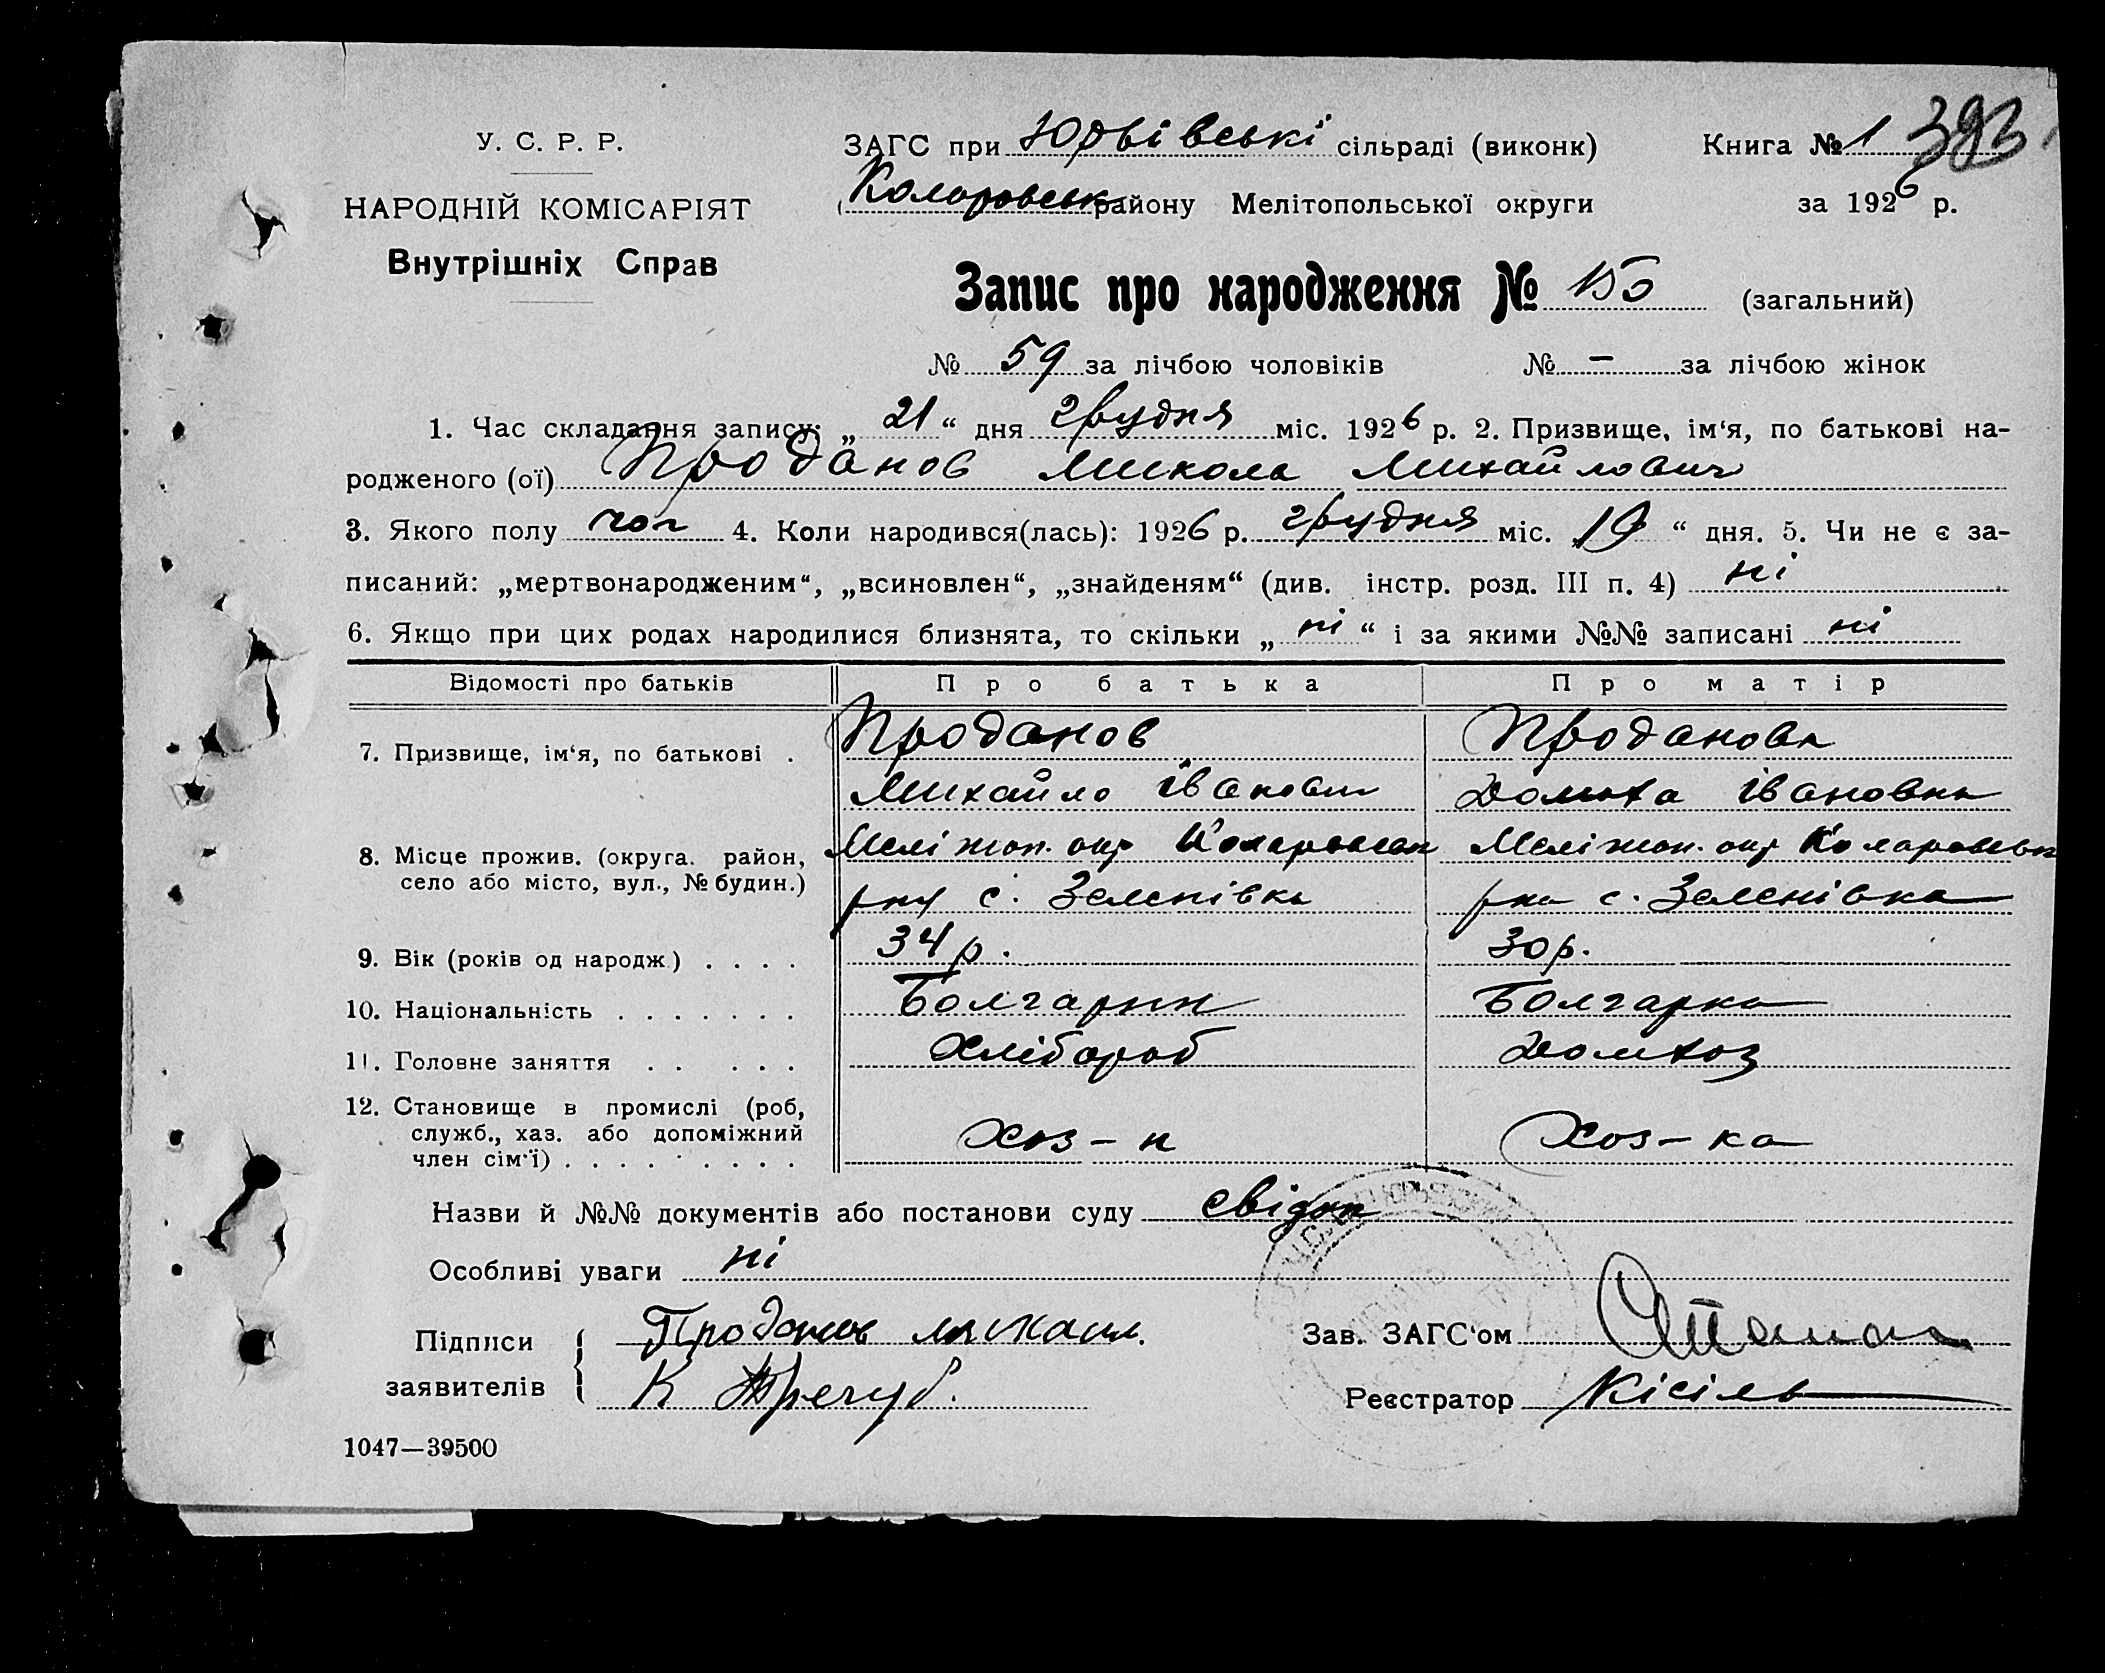 У. С. Р. Р.
НАРОДНІЙ КОМІСАРІЯТ
Внутрішніх Справ
ЗАГС при Юрьівські сільраді (виконк)
Коларовськ району Мелітопольської округи
Книга № 1 393
за 1926 р.
Запис про народження № 150 (загальний)
№ 59 за лічбою чоловіків № — за лічбою жінок
1. Час складання запису: „ 21 “ дня грудня міс. 1926 р. 2. Призвище, ім‘я, по батькові на-
родженого (ої) Проданов Микола Михайлович
3. Якого полу чол 4. Коли народився(лась): 1926 р. грудня міс. „19 “ дня. 5. Чи не є за-
писаний: „мертвонародженим“, „всиновлен“, „знайденям“ (див. інстр. розд. III п. 4) ні
6. Якщо при цих родах народилися близнята, то скільки „ ні “ і за якими №№ записані ні
Відомості про батьків Про батька Про матір
7. Призвище, ім‘я, по батькові . Проданов Проданова
Михайло Іванович Домнха Івановна
8. Місце прожив. (округа. район, Меліжоп. окр Коларовськ Меліжоп. окр Коларовськ
село або місто, вул., № будин.) рну с. Зеленівка рна с. Зеленівка
9. Вік (років од народж.) . . . . 34 р. 30 р.
10. Національність . . . . . . . Болгарин Болгарка
11. Головне заняття . . . . . Хлібороб Домхоз
12. Становище в промислі (роб,
служб., хаз. або допоміжний Хоз-н Хоз-ка
член сім‘ї) . . . . . . . . .
Назви й №№ документів або постанови суду свідоп
Особливі уваги ні
Підписи Проданов михаил.
заявителів К Тречуб.
Зав. ЗАГС‘ом
Реєстратор Кісіль
1047—39500